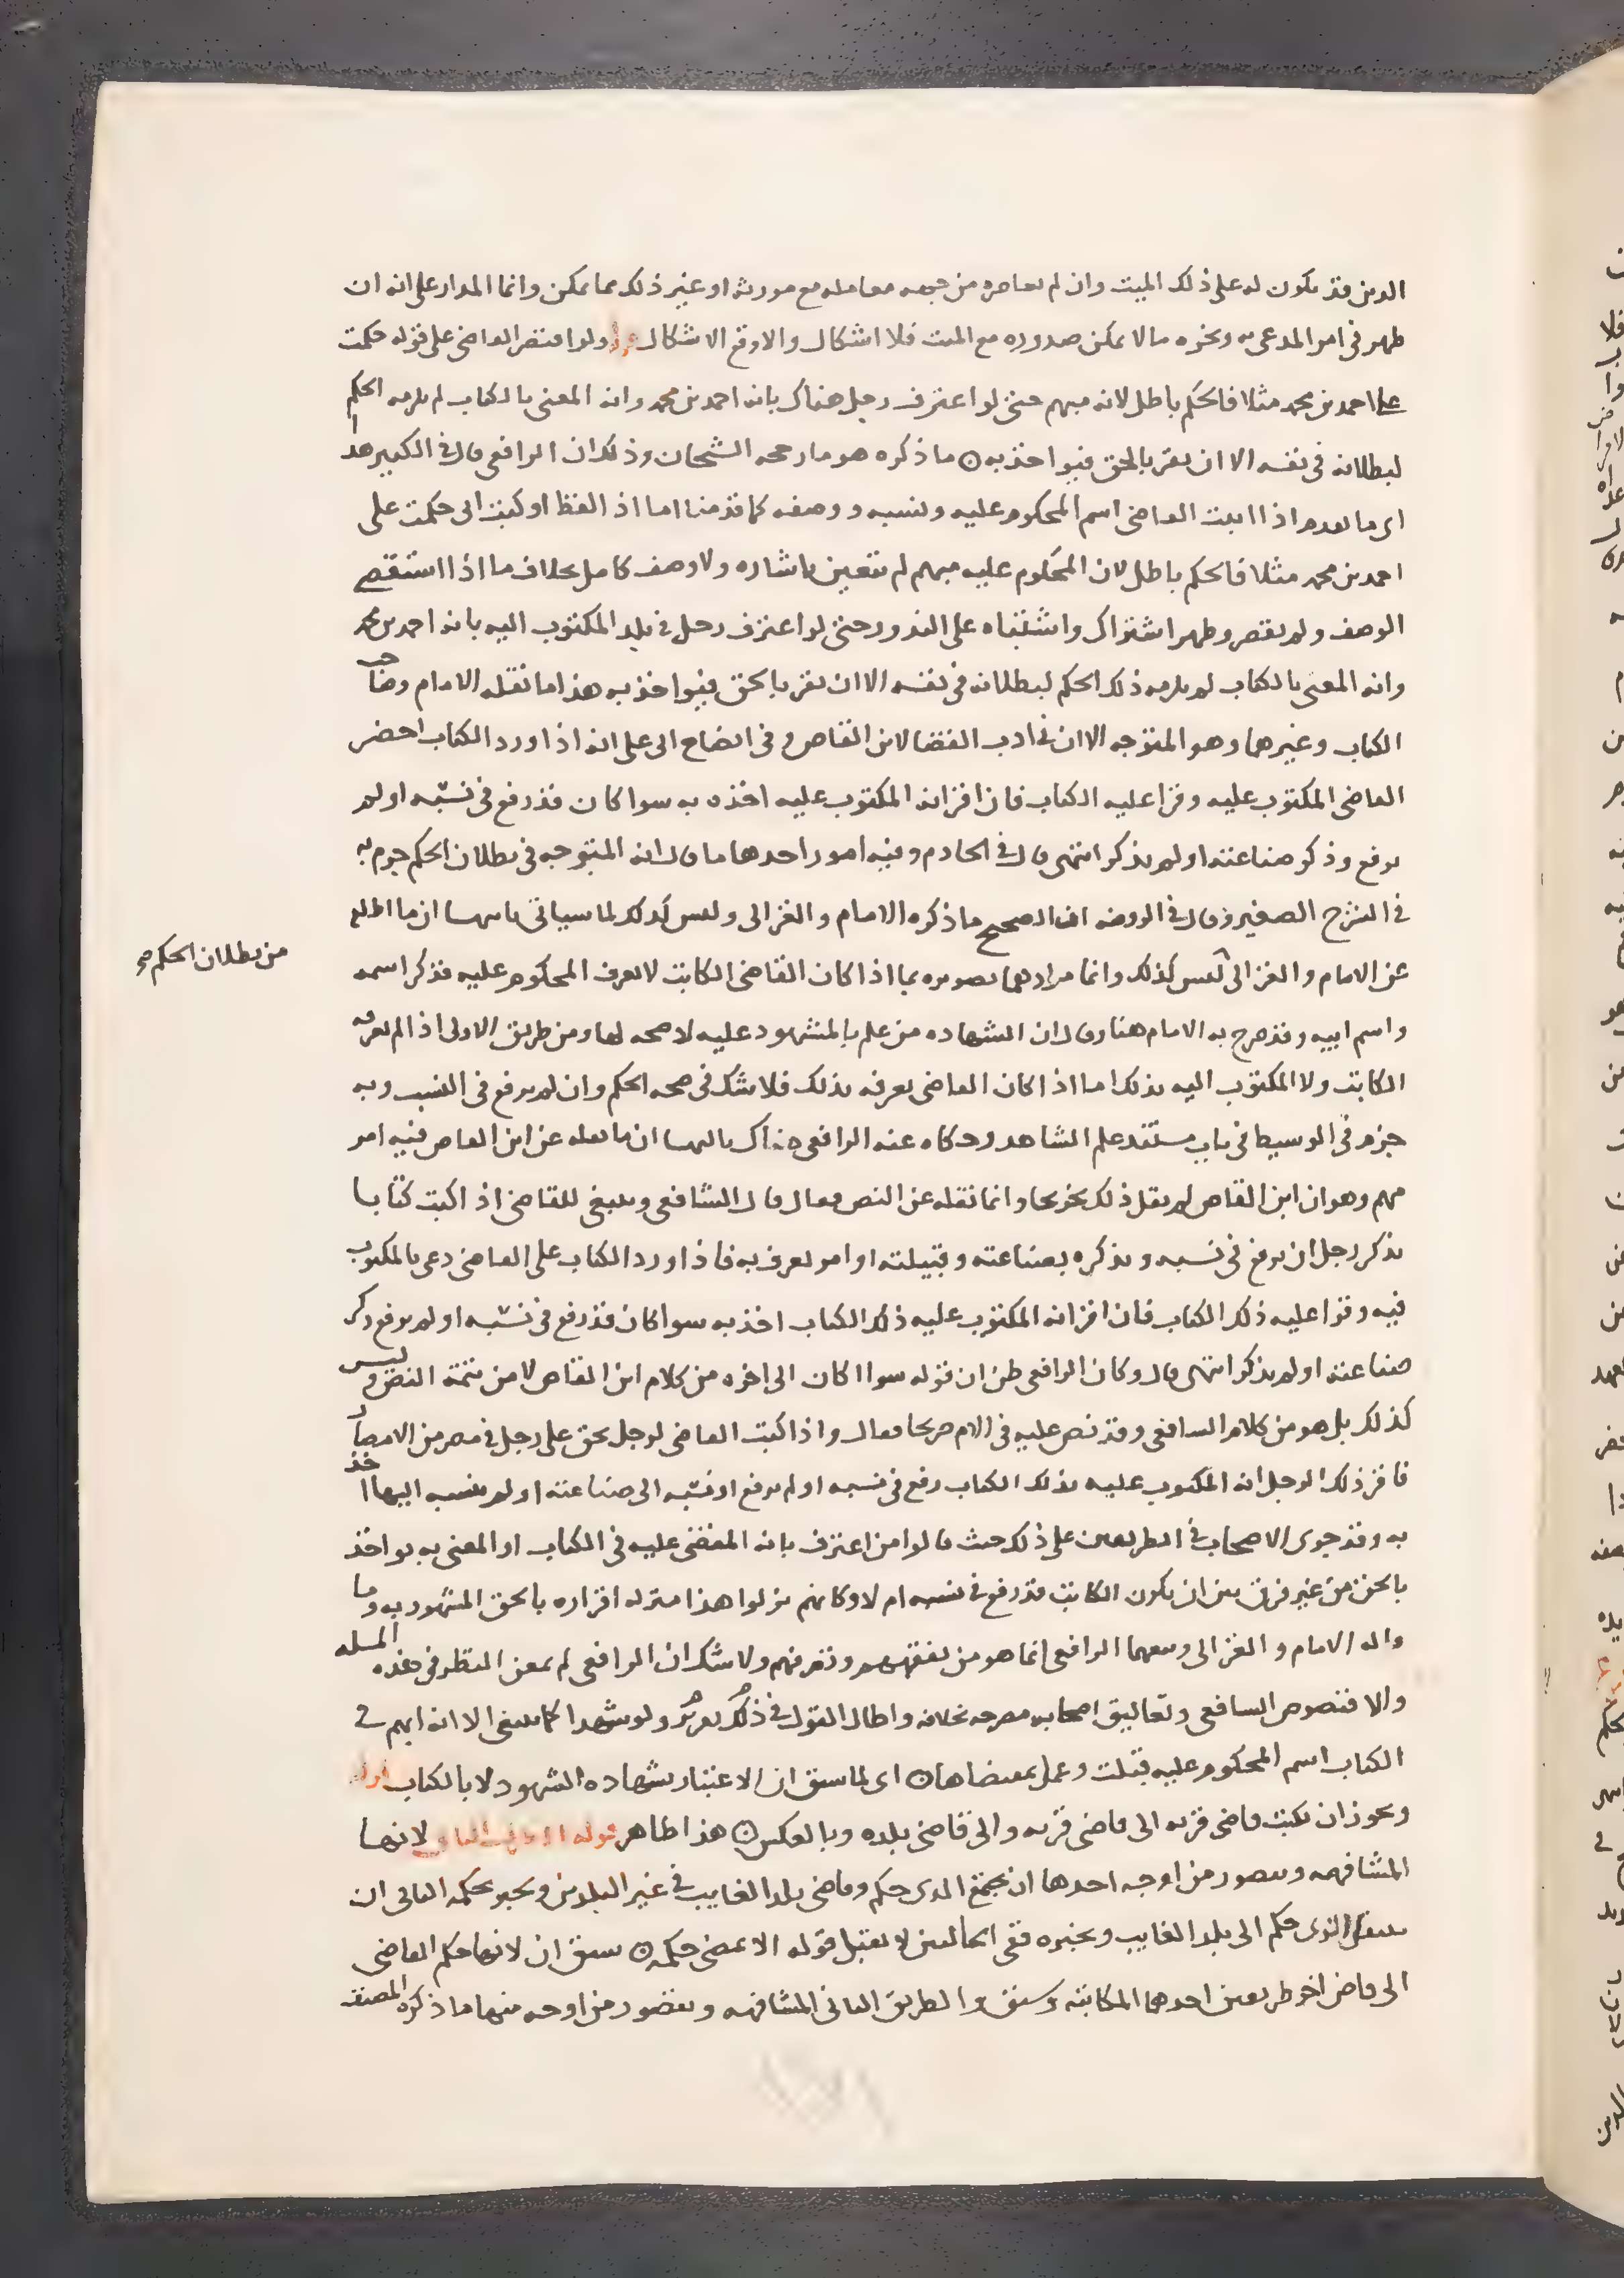 الدين قد يكون له على ذلك الميت وان لم يعاصره من جهه معامله مع مورثه او غير ذلك مما يمكن وانما المدار على انه ان
ظهر في امر المدعى به ونحوه مالا يمكن صدوره مع الميت فلا اشكال والا وقع الاشكال ولو اقتصر القاضي على قوله حكمت
على احمد بن محمد مثلا فالحكم باطل لانه مبهم حتى لو اعترف رجل هناك بانه احمد بن محمد وانه المعنى بالكتاب لم يلزمه الحكم
لبطلانه في نفسه الا ان يقر بالحق فيواخذ به ما ذكره هو ما رجحه الشيخان وذلك ان الرافعي قال في الكبير هذا
اي ما تقدم اذا اثبت القاضي اسم المحكوم عليه ونسبه ووصفه كما قدمنا اما اذ الفظ او كتب اني حكمت على
احمد بن محمد مثلا فالحكم باطل لان المحكوم عليه مبهم لم يتعين باشاره ولا وصف كامل بخلاف ما اذا استقصى
الوصف ولم يقصر وظهر اشتراك واشتباه على الندور حتى لو اعترف رجل في بلد المكتوب اليه بانه احمد بن محمد
وانه المعنى بالكتاب لم يلزمه ذلك الحكم لبطلانه في نفسه الا ان يقر بالحق فيواخذ به هذا ما نقله الامام وصاحب
الكتاب وغيرهما وهو المتوجه الا ان في ادب القضا لابن القاص وفي ايضاح ابي علي انه اذا ورد الكتاب احضر
القاضي المكتوب عليه وقرا عليه الكتاب فان اقر انه المكتوب عليه اخذه به سوا كان قد رفع في نسبه او لم
يرفع وذكر صناعته او لم يذكر انتهى قال في الخادم وفيه امور احدها ما قال انه المتوجه في بطلان الحكم جزم به
في الشرح الصغير وقال في الروضه انه الصحيح ما ذكره الامام والغزالي وليس كذلك لما سياتي ثانيها ان ما اطلع
من بطلان الحكم صح
عن الامام والغزالي ليس كذلك وانما مرادهما تصويره بما اذا كان القاضي الكاتب لا يعرف المحكوم عليه فذكر اسمه
واسم ابيه وقد صرح به الامام هنا وقال ان الشهاده من علم بالمشهود عليه لا صحه لها ومن طريق الاولى اذا لم يعرفه
الكاتب ولا المكتوب اليه بذلك اما اذا كان القاضي يعرفه بذلك فلا شك في صحه الحكم وان لم يرفع في النسب وبه
جزم في الوسيط في باب مستند علم الشاهد وحكاه عنه الرافعي هناك ثالثها ان ما نقله عن ابن القاص فيه امر
مهم وهو ان ابن القاص لم يقل ذلك تخريجا وانما نقله عن النص فقال قال الشافعي وينبغي للقاضي اذ اكتب كتابا
يذكر رجل ان يرفع في نسبه ويذكره بصناعته وقبيلته او امر يعرف به فاذا ورد الكتاب على القاضي دعى بالمكتوب
فيه وقرا عليه ذلك الكتاب فان اقر انه المكتوب عليه ذلك الكتاب اخذ به سوا كان قد رفع في نسبه او لم يرفع ذكر
صناعته او لم يذكر انتهى قال وكان الرافعي ظن ان قوله سوا كان الى اخره من كلام ابن القاص لا من تتمة النص وليس
كذلك بل هو من كلام الشافعي وقد نص عليه في الام صريحا فقال واذا كتب القاضي لرجل بحق على رجل في مصر من الامصار
فاقر ذلك الرجل انه المكتوب عليه بذلك الكتاب رفع في نسبه او لم يرفع او نسبه الى صناعته او لم ينسبه اليها اخذ
به وقد جرى الاصحاب في الطريقين على ذلك حيث قالوا من اعترف بانه المقضى عليه في الكتاب او المعنى به يواخذ
بالحق من غير فرق بين ان يكون الكاتب قد رفع في نسبه ام لا وكانهم نزلوا هذا منزله اقراره بالحق المشهود به وما
قاله الامام والغزالي وتبعهما الرافعي انما هو من تفقههم وتصرفهم ولا شك ان الرافعي لم يمعن النظر في هذه المسله
والا فنصوص الشافعي وتعاليق اصحابه مصرحه بخلافه واطال القول في ذلك ولو شهدا كما ينبغي الا انه ابهم في
الكتاب اسم المحكوم عليه قبلت وعمل بمقتضاها اي لما سبق ان الاعتبار بشهاده الشهود لا بالكتاب قوله
ويجوز ان يكتب قاضي قريه الى قاضي قريه والى قاضي بلده وبالعكس هذا ظاهر قوله لانها
المشافهه ويتصور من اوجه احدها ان يجتمع الذي حكم وقاضي بلد الغايب في غير البلدين ويخبر بحكمه الثاني ان
ينتقل الذي حكم الى بلد الغايب ويخبره ففي الحالين لا يقبل قوله الا يمضي حكمه سبق ان لانها حكم القاضي
الى قاض اخر طريقين احدهما المكاتبه وسبق والطريق الثاني المشافهه ويتصور من اوجه منها ما ذكره المصنف